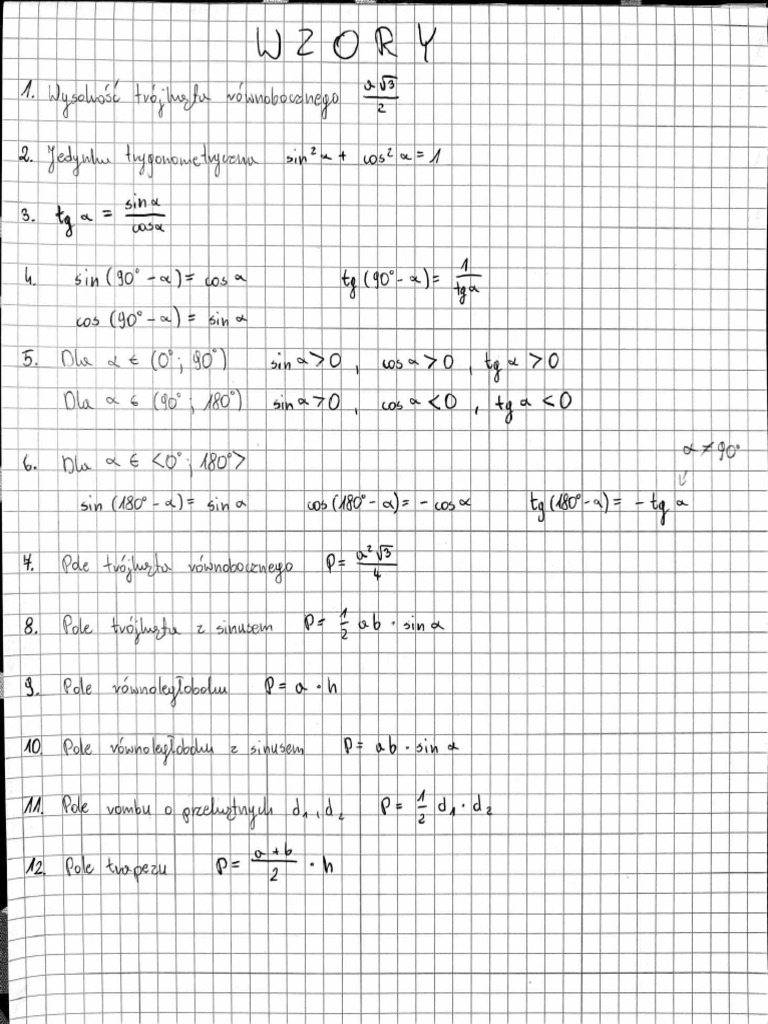 WZORY
1. Wysokość trójkąta równobocznego a√3/2
2. Jedynka trygonometryczna sin²α + cos²α = 1
3. tg α = sinα/cosα
4. sin (90° - α) = cos α tg (90° - α) = 1/tgα
cos (90° - α) = sin α
5. Dla α ∈ (0° ; 90°) sin α > 0 , cos α > 0 , tg α > 0
Dla α ∈ (90° ; 180°) sin α > 0 , cos α < 0 , tg α < 0
α ≠ 90°
6. Dla α ∈ <0° ; 180°>
sin (180° - α) = sin α cos (180° - α) = - cos α tg (180° - α) = - tg α
7. Pole trójkąta równobocznego P = a²√3/4
8. Pole trójkąta z sinusem P = 1/2 ab · sin α
9. Pole równoległoboku P = a · h
10. Pole równoległoboku z sinusem P = ab · sin α
11. Pole rombu o przekątnych d₁, d₂ P = 1/2 d₁ · d₂
12. Pole trapezu P = a + b/2 · h